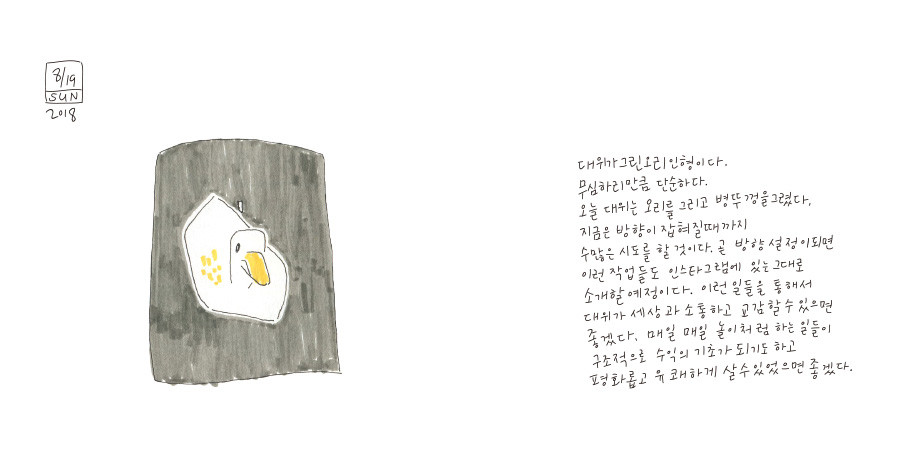 8/19
SUN
2018
대위가그린오리인형이다.
무심하리만큼 단순하다.
오늘 대위는 오리를 그리고 병뚜껑을그렸다.
지금은 방향이 잡혀질때까지
수많은 시도를 할 것이다. 곧 방향 설정이되면
이런 작업들도 인스타그램에 있는그대로
소개할 예정이다. 이런 일들을 통해서
대위가 세상과 소통하고 교감할수있으면
좋겠다. 매일 매일 놀이처럼 하는 일들이
구조적으로 수익의 기초가 되기도 하고
평화롭고 유쾌하게 살수있었으면 좋겠다.